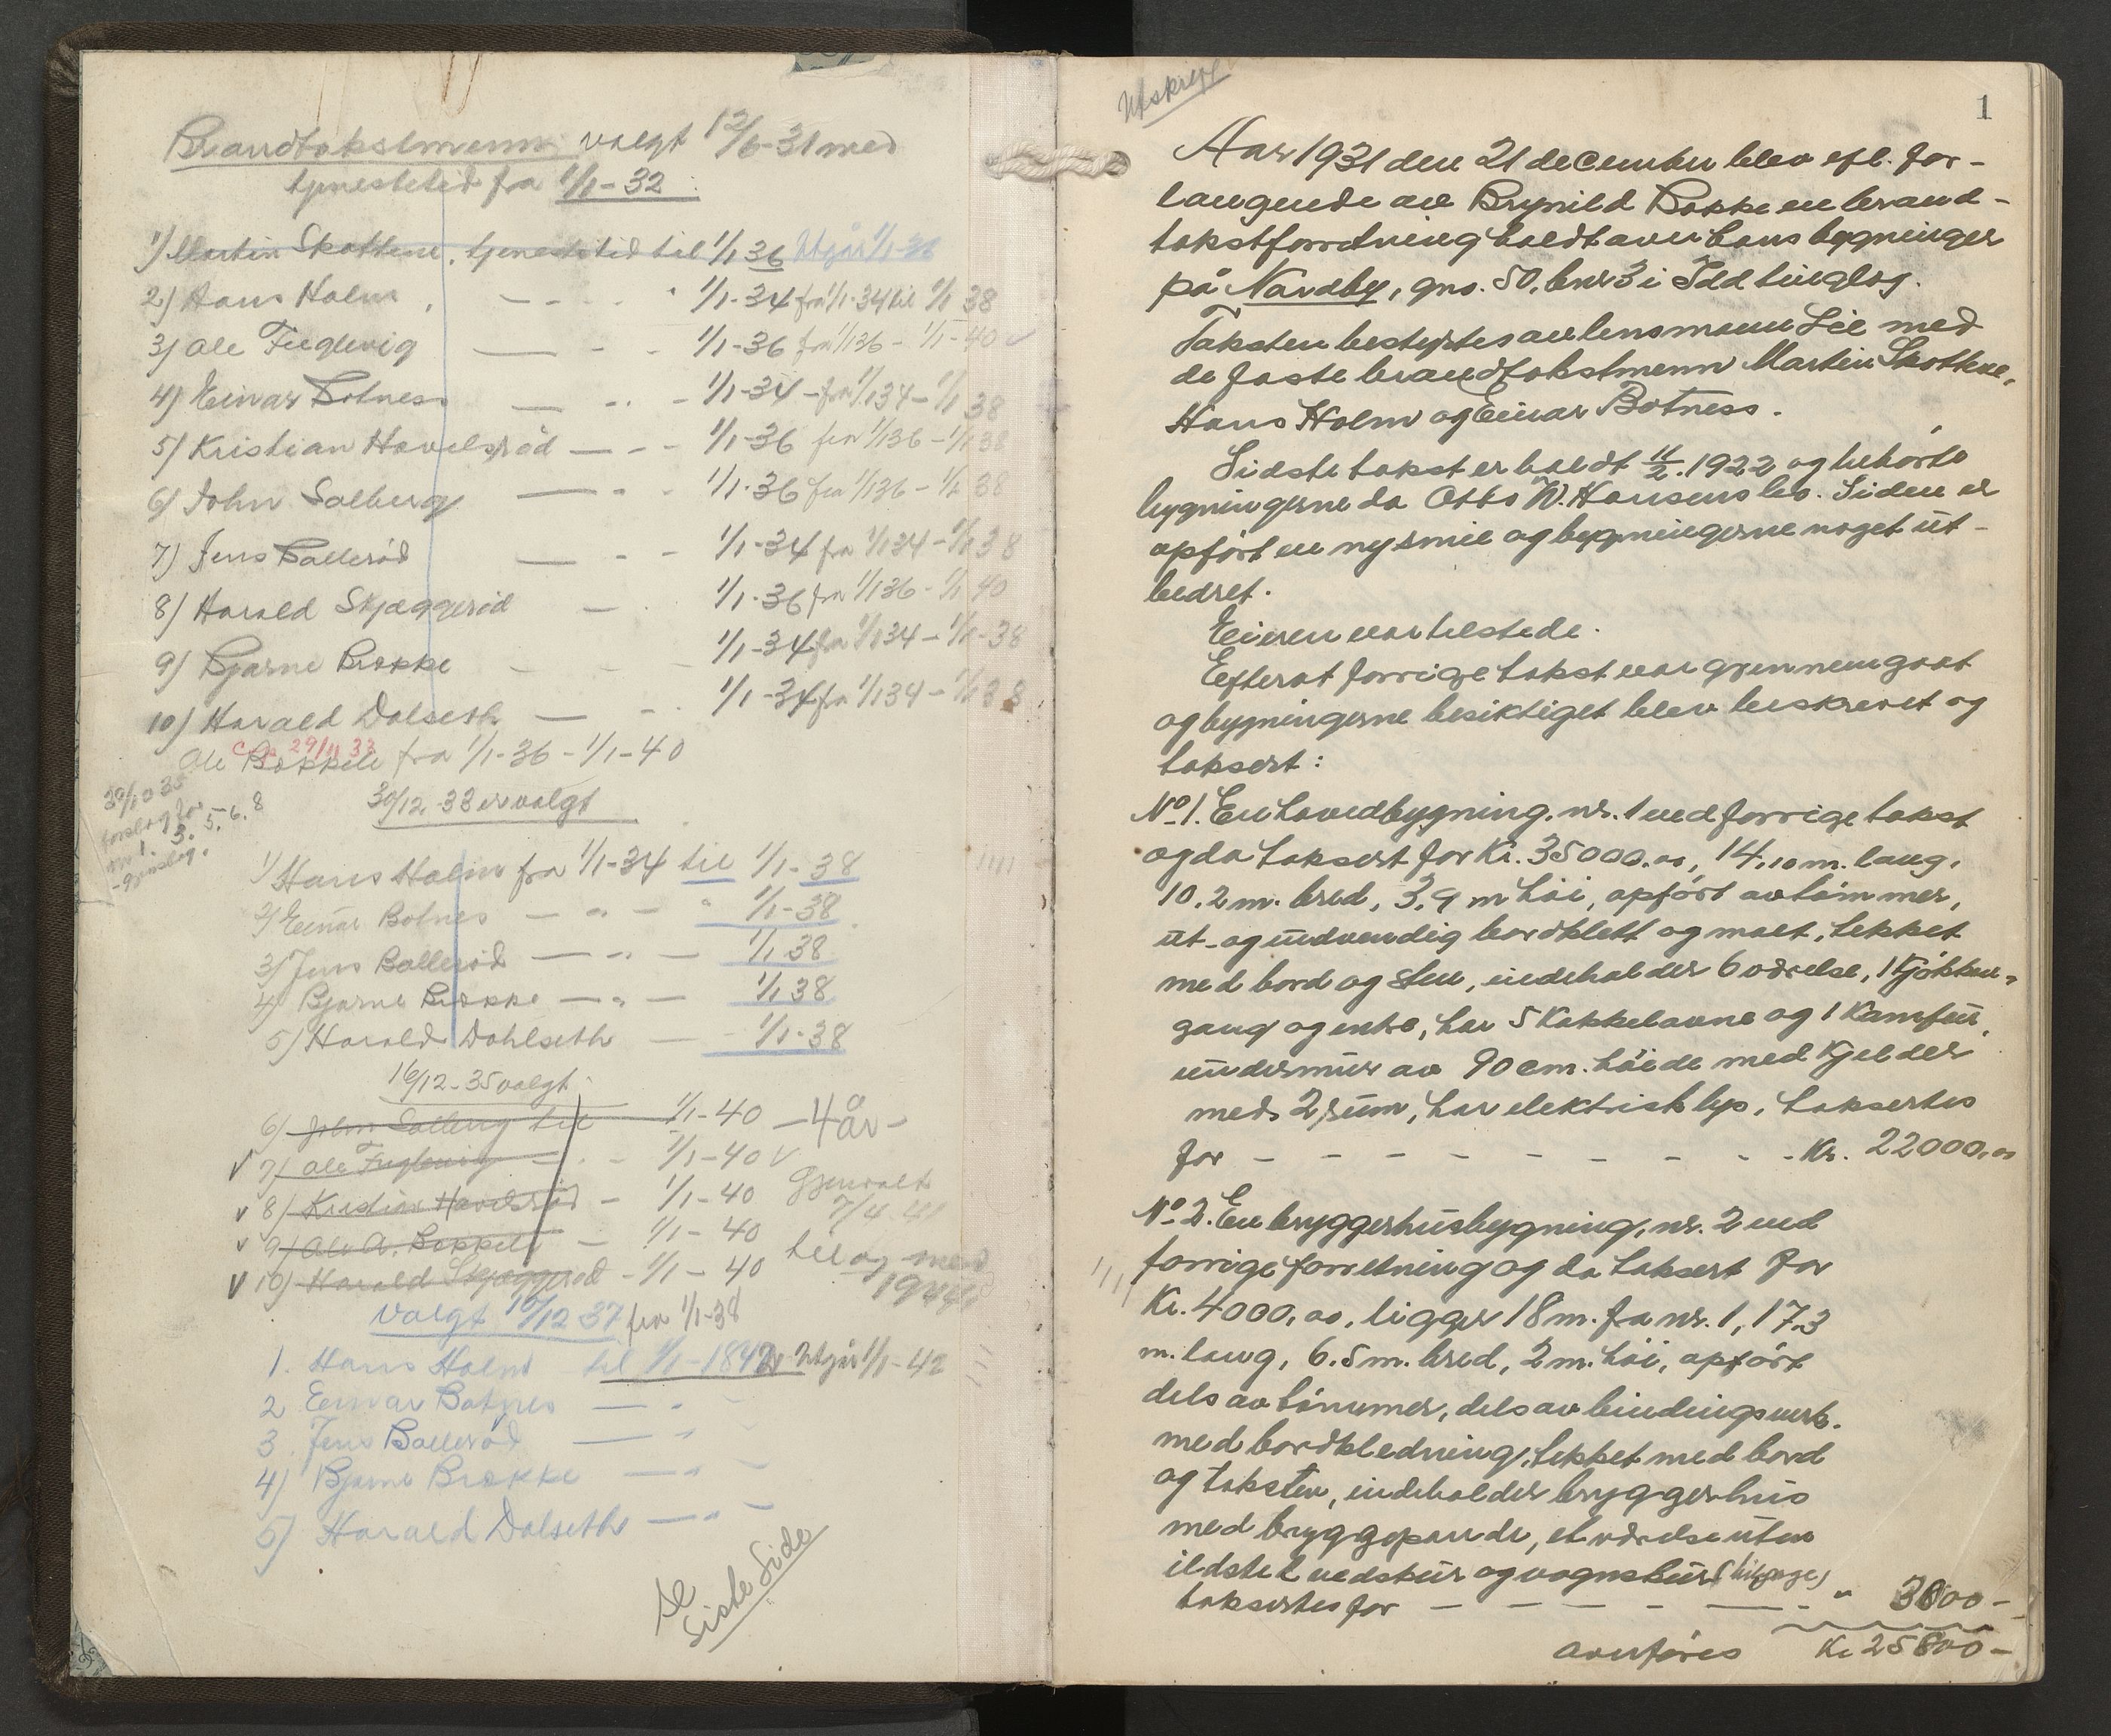 Brandtakstmenn valgt 12/6-31 med
tjenestetid fra 1/1-32:
1) Martin Skottene, tjenestetid til 1/1 36 Utgår 1/1-36
2) Hans Holm, — - - - 1/1-34 fra 1/1-34 til 1/1 38
3) Ole Fuglevig — - - 1/1-36 fra 1/1 36 - 1/1-40 v
4) Einar Botness — - - - 1/1-34 - fra 1/1 34 - 1/1 38
5) Kristian Havelsrød — - - 1/1-36 fra 1/1 36 - 1/1 38
6) John Solberg — - - 1/1-36 fra 1/1 36 - 1/1 38
7) Jens Ballerød — - - 1/1-34 fra 1/1 34 - 1/1 38
8) Harald Skjæggerød — - 1/1-36 fra 1/1 36 - 1/1 40
9) Bjarne Brække - - - 1/1-34 fra 1/1 34 - 1/1-38
10) Harald Dalseth — - - 1/1-34 fra 1/1 34 - 1/1 38
29/11 33
Ole Bakkele fra 1/1-36 - 1/1-40
30/10 35
forslag for
nr 1. 3. 5. 6. 8
30/12-33 er valgt
1) Hans Holm fra 1/1-34 til 1/1-38
2) Einar Botnes — " — " 1/1-38
3) Jens Ballerød — " — 1/1 38
4) Bjarne Brække — " — 1/1 38
5) Harald Dahlseth — - 1/1-38
16/12-35 valgt
6) John Solberg til 1/1-40 - 4 år -
v 7) Ole Fuglevig — - - 1/1-40 v
v 8) Kristian Havelsrød - 1/1-40 Gjenvalt
7/4 41
v 9) Ole A. Bakkele — 1/1-40
til og med
v 10) Harald Skjæggerød - 1/1-40
1944
Valgt 16/12 37 fra 1/1-38
1. Hans Holm til 1/1-1842 Utgår 1/1-42
2 Einar Botnes — " -
3. Jens Ballerød — " -
4) Bjarne Brække — " -
5) Harald Dalseth — " -
Se
Siste Side
Utskrift
1
Aar 1931 den 21 december blev efl. for-
langende av Brynild Bakke en brand-
takstforretning holdt over hans bygninger
på Nordby, gno. 50, bnr 3 i Idd tinglag.
Taksten bestyrtes av lensmann Lie med
de faste brandtakstmenn Martin Skottene,
Hans Holm og Einar Botness.
Sidste takst er holdt 11/2.1922 og tilhørte
bygningerne da Otto W. Hansens bo. Siden er
opført en ny smie og bygningerne noget ut-
bedret.
Eieren var tilstede.
Efterat forrige takst var gjennemgaat
og bygningerne besiktiget blev beskrevet og
taksert:
No 1. En hovedbygning, nr. 1 ved forrige takst
og da taksert for Kr. 35000.00, 14,10 m. lang,
10.2 m. bred, 3,9 m høi, opført av tømmer,
ut- og indvendig bordklett og malt, tekket
med bord og sten, indeholder 6 værelse, 1 kjøkken,
gang og entre, har 5 kakkelovne og 1 kamfun,
undermur av 90 cm. høide med kjelder
med 2 rum, har elektrisk lys, taksertes
for - - - - - - - - - Kr. 22000.00
No 2. En bryggerhusbygning, nr. 2 ved
forrige forretning og da taksert for
Kr. 4000.00, ligger 18 m. fra nr. 1, 17.3
m. lang, 6.5 m. bred, 2 m. høi, opført
dels av tømmer, dels av bindingsverk.
med bordkledning, tekket med bord
og taksten, indeholder bryggerhus
med bryggepande, et værelse uten
ildsted vedskur og vognskur (bilgarage)
taksertes for — — — — — " 3800 -
overføres Kr 25800 -